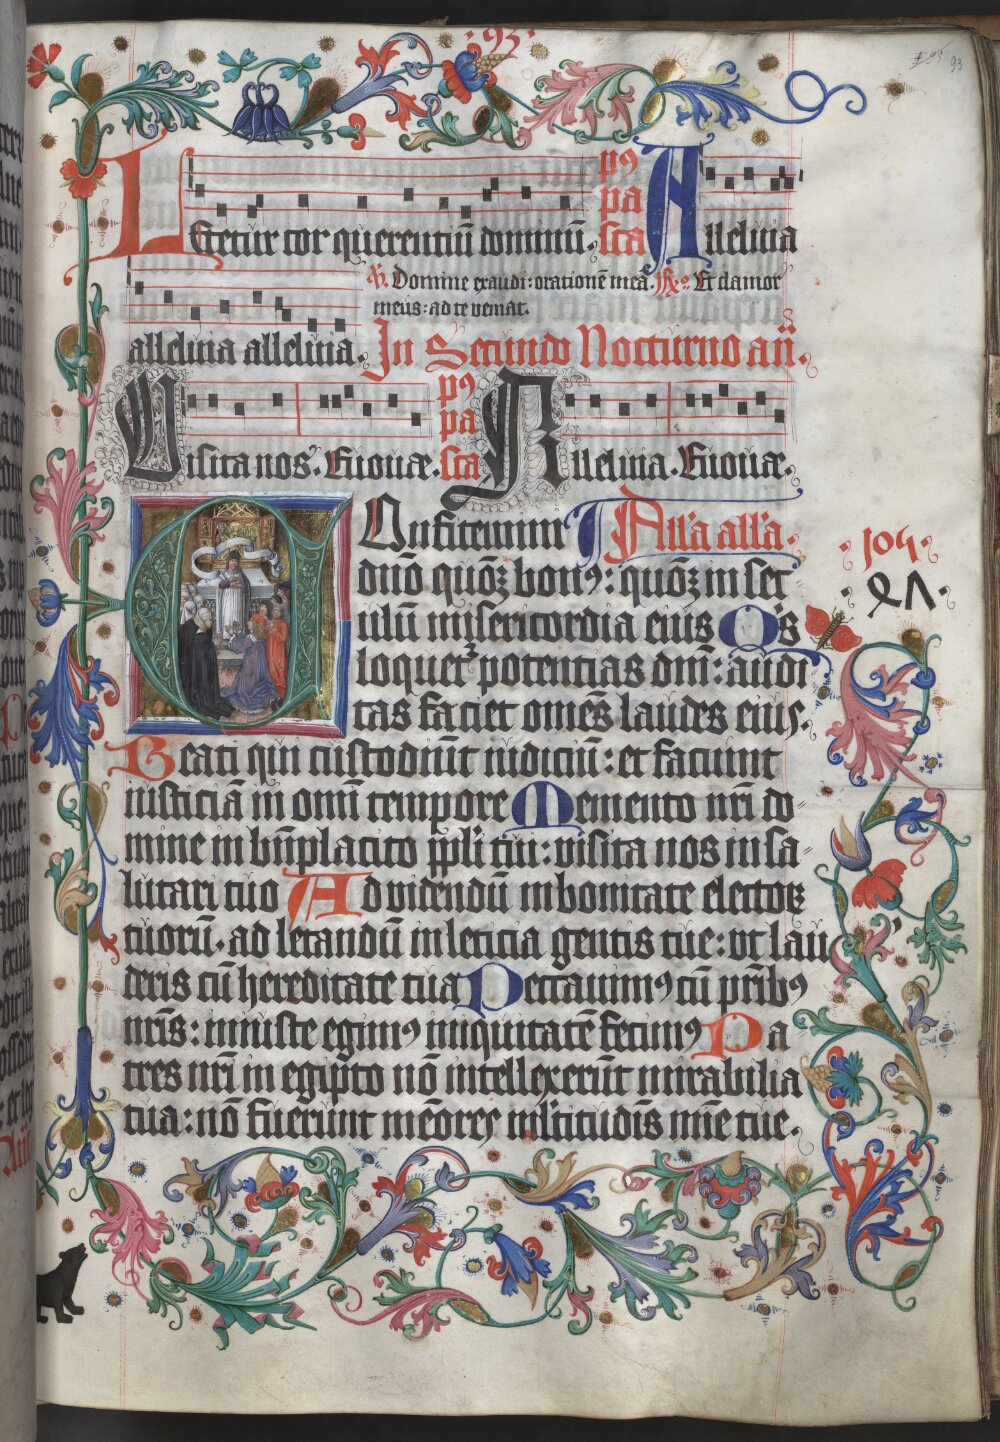 ·93·
93
Letetur cor querentiū dominū. ps pa sca Alleluia
℣. Domine exaudi: orationē meā. ℟. Et clamor
meus: ad te veniat.
alleluia alleluia. In Secundo Nocturno añ.
Visita nos. Euouae. ps pa sca Alleluia. Euouae.
COnfitemini All'a all'a.
dnō quoꝫ bonꝰ: quoꝫ in sec
ulū misericordia eius Qis
loquetʳ potentias dnī: audi
tas faciet omēs laudes eius.
Beati qui custodiūt iudiciū: et faciunt
iusticiā in omī tempore Memento nrī do
mine in bn̄placito ppli tui: visita nos in sa
lutari tuo Ad videndū in bonitate electoꝝ
tuorū. ad letandū in leticia gentis tue: vt lau
deris cū hereditate tua Peccauimꝰ cū prībꝰ
nrīs: iniuste egimꝰ iniquitatē fecimꝰ Pa
tres nrī in egipto nō intellexerūt mirabilia
tua: nō fuerunt mēores mltitudīs mīe tue.
·105·